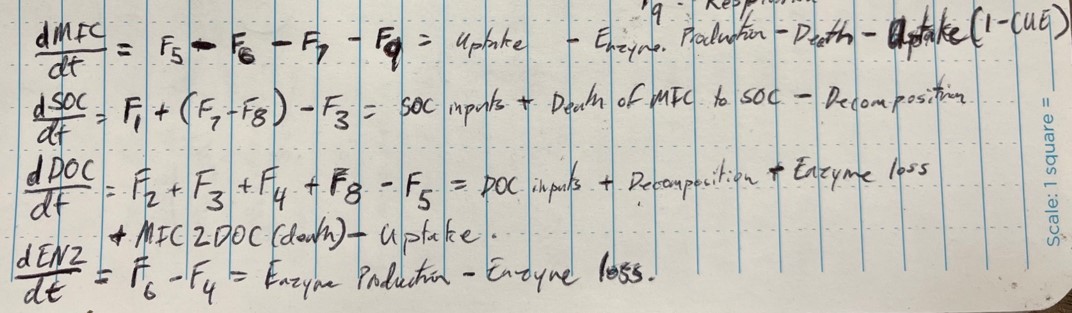 9 - Respiration
dMIC/dt = F5 - F6 - F7 - F9 = Uptake - Enzyme. Production - Death - Uptake (1-CUE)
dSOC/dt = F1 + (F7-F8) - F3 = SOC inputs + Death of MIC to SOC - Decomposition
dDOC/dt = F2 + F3 + F4 + F8 - F5 = DOC inputs + Decomposition + Enzyme loss
+ MIC2DOC (death) - Uptake.
dENZ/dt = F6 - F4 = Enzyme Production - Enzyme loss.
Scale: 1 square =